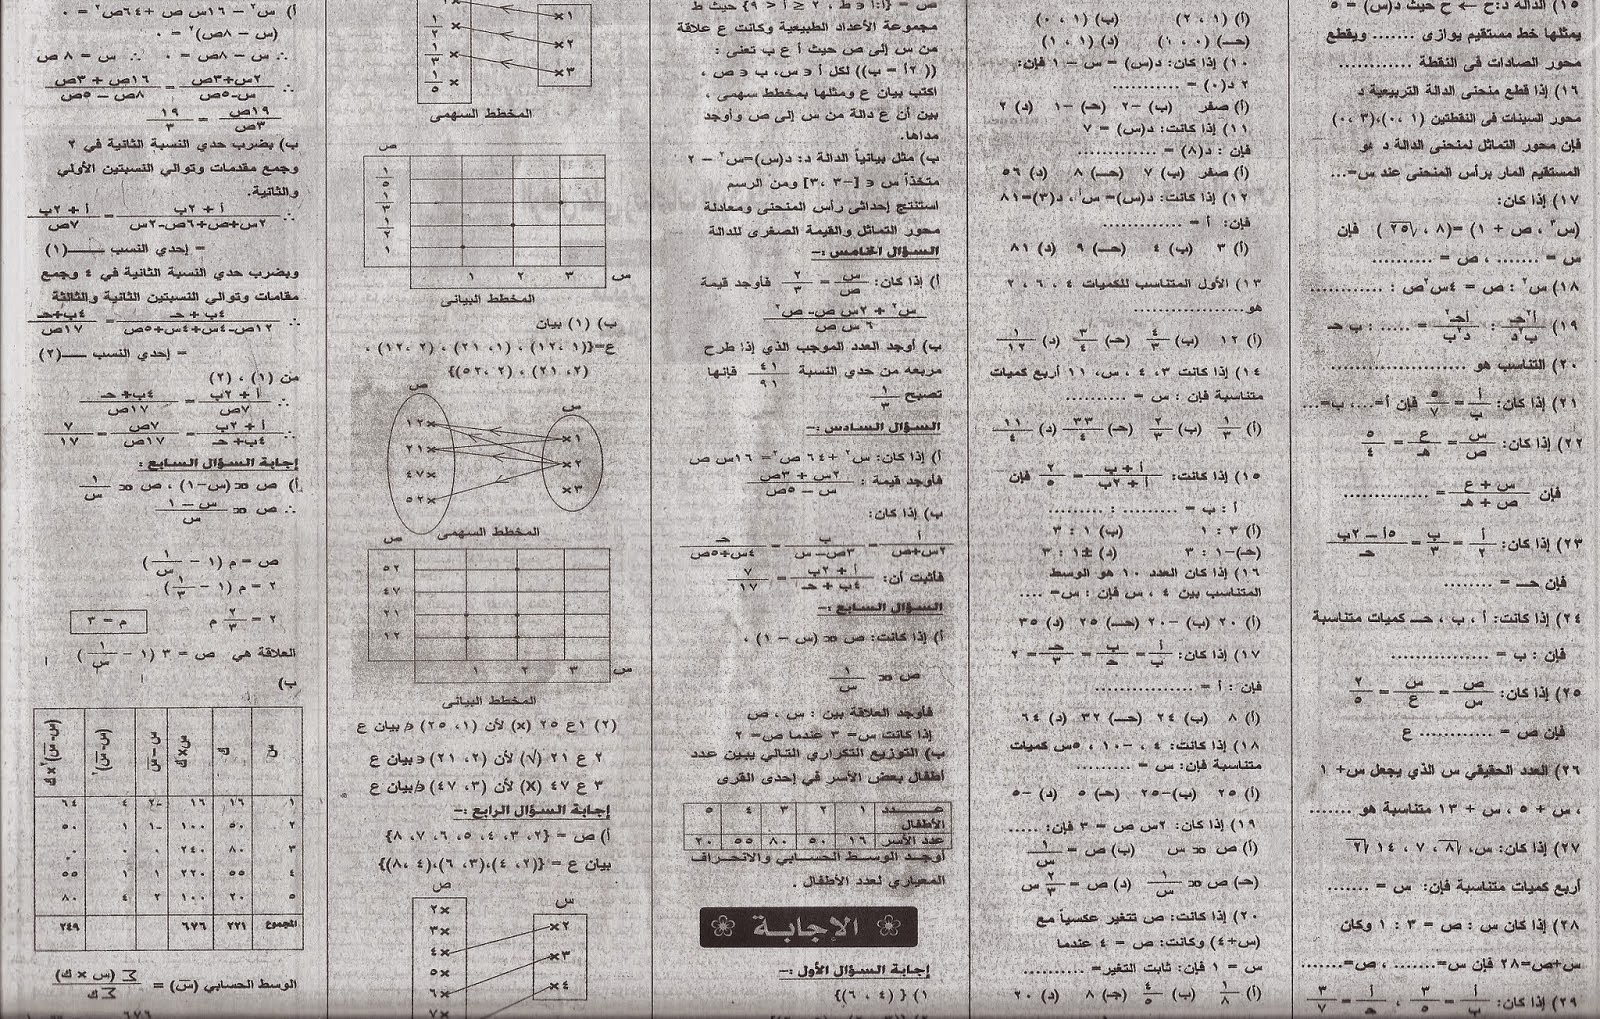 ١٥) الدالة د:ح ← ح حيث د(س) = ٥
يمثلها خط مستقيم يوازى ....... ويقطع
محور الصادات فى النقطة ............
١٦) إذا قطع منحنى الدالة التربيعية د
محور السينات فى النقطتين (١ ،٠)،(٣ ،٠)
فإن محور التماثل لمنحنى الدالة د هو
المستقيم المار برأس المنحنى عند س=...
١٧) إذا كان:
(س٣ ، ص + ١) =(٨ ، √٢٥) فإن
س = ....... ، ص = ..........
١٨) س٢ : ص = ٤س٢ص : ............
٢٠) التناسب هو ......................
٢١) إذا كان: أ/ب = ٥/٧ فإن أ=....، ب=...
٢٢) إذا كان: س/ص = ع/هـ = ٥/٤
فإن س + ع / ص + هـ = ..............
٢٣) إذا كان: أ/٢ = ب/٣ = ٥أ − ٢ب / حـ
فإن حـ = ........
٢٤) إذا كانت: أ ، ب ، حـ كميات متناسبة
فإن : ب = ................
٢٥) إذا كان: ص/س = س/ع = ٢/٥
فإن ص = ............ ع
٢٦) العدد الحقيقي س الذي يجعل س+ ١
، س + ٥ ، س + ١٣ متناسبة هو .......
٢٧) إذا كان: س، √٨ ، ٧ ، ١٤√٢
أربع كميات متناسبة فإن: س = .......
٢٨) إذا كان س : ص = ٣ : ١ وكان
س+ص=٢٨ فإن س=....... ، ص=.......
(أ) (١ ، ٢) (ب) (١ ، ٠)
(حـ) (٠ ، ١) (د) (١ ، ١)
١٠) إذا كان: د(س) = س − ١ فإن:
٢ د(٠) = ...........
(أ) صفر (ب) −٢ (حـ) −١ (د) ٢
١١) إذا كانت: د(س) = ٧
فإن : د(٨) = .............
(أ) صفر (ب) ٧ (حـ) ٨ (د) ٥٦
١٢) إذا كانت: د(س)= س أ، د(٣)=٨١
فإن: أ = ............
(أ) ٣ (ب) ٤ (حـ) ٩ (د) ٨١
١٣) الأول المتناسب للكميات ٤ ، ٦ ، ٢
هو..................
(أ) ١٢ (ب) ٤/٣ (حـ) ٣/٤ (د) ١/١٢
١٤) إذا كانت ٣، ٤ ، س، ١١ أربع كميات
متناسبة فإن : س = ..........
(أ) ١/٣ (ب) ٢/٣ (حـ) ٣٣/٤ (د) ١١/٤
١٥) إذا كانت: أ + ب / أ + ٢ب = ٢/٥ فإن
أ : ب = ......... : .........
(أ) ٣ : ١ (ب) ١ : ٣
(حـ)−١ : ٣ (د) ±١ : ٣
١٦) إذا كان العدد ١٠ هو الوسط
المتناسب بين ٤ ، س فإن : س= ....
(أ) ٢٠ (ب) −٢٠ (حـ) ٢٥ (د) ٣٥
١٧) إذا كان: أ/ب = ب/حـ = حـ/٣ = ٢
فإن : أ = ..............
(أ) ٨ (ب) ٢٤ (حـ) ٣٢ (د) ٦٤
١٨) إذا كانت: ٤ ، −١٠ ، ٥س كميات
متناسبة فإن: س = .........
(أ) ٢٥ (ب)−٢٥ (حـ) ٥ (د) −٥
١٩) إذا كان: ٢س ص = ٣ فإن: .....
(أ) ص ∝ س (ب) ص = ١/س
(حـ) ص ∝ ١/س (د) ص = ٢/٣ س
٢٠) إذا كانت: ص تتغير عكسياً مع
(س+٤) وكانت: ص = ٤ عندما
س = ١ فإن: ثابت التغير= ..........
(أ) ١/٨ (ب) ٤/٥ (جـ) ٨ (د) ٢٠
مجموعة الأعداد الطبيعية وكانت ع علاقة
من س إلى ص حيث أ ع ب تعنى :
((٢أ = ب)) لكل أ ∈ س، ب ∈ ص ،
اكتب بيان ع ومثلها بمخطط سهمى ،
بين أن ع دالة من س إلى ص وأوجد
مداها.
ب) مثل بيانياً الدالة د: د(س)=س٢ − ٢
متخذاً س ∈ [−٣ ،٣] ومن الرسم
استنتج إحداثى رأس المنحنى ومعادلة
محور التماثل والقيمة الصغرى للدالة
السؤال الخامس :−
أ) إذا كان: س/ص = ٢/٣ فأوجد قيمة
س٢ + ٢س ص− ص٢ / ٦ س ص
ب) أوجد العدد الموجب الذي إذا طرح
مربعه من حدي النسبة ٤١/٩١ فإنها
تصبح ١/٣
السؤال السادس :−
أ) إذا كان: س٢ +٦٤ ص٢= ١٦س ص
فأوجد قيمة : ٢س + ٣ص / س − ٥ص
ب) إذا كان:
أ / ٢س+ص = ب / ٣ص−س = حـ / ٤س+٥ص
فأثبت أن: أ + ٢ب / ٤ب + حـ = ٧/١٧
السؤال السابع :−
أ) إذا كانت: ص ∝ (س − ١) ،
ص ∝ ١/س
فأوجد العلاقة بين : س ، ص
إذا كانت س= ٣ عندما ص= ٢
ب) التوزيع التكراري التالي يبين عدد
أطفال بعض الأسر في إحدى القرى
عدد الأطفال ١ ٢ ٣ ٤ ٥
عدد الأسر ١٦ ٥٠ ٨٠ ٥٥ ٢٠
أوجد الوسط الحسابي والانحراف
المعياري لعدد الأطفال .
الإجابة
إجابة السؤال الأول :−
١) { (٤ ، ٦)}
×١
×٢
×٣
١/٢×
١/٣×
١/٥×
المخطط السهمى
ص
١/٥
١/٣
١/٢
١
١ ٢ ٣ س
المخطط البيانى
ب) (١) بيان
ع={(١ ،١٢) ، (١، ٢١) ، (٢ ،١٢) ،
(٢، ٢١) ، (٢ ،٥٢)}
ص
س
١٢×
٢١×
٤٧×
٥٢×
×١
×٢
×٣
المخطط السهمى
ص
٥٢
٤٧
٢١
١٢
١ ٢ ٣ س
المخطط البيانى
(٢) ١ع ٢٥ (×) لأن (١، ٢٥) ∉ بيان ع
٢ ع ٢١ (√) لأن (٢، ٢١) ∈ بيان ع
٣ ع ٤٧ (×) لأن (٣، ٤٧) ∉بيان ع
إجابة السؤال الرابع :−
(أ) ص = {٢، ٣، ٤، ٥، ٦، ٧، ٨}
بيان ع = {(٢، ٤)،(٣، ٦)،(٤ ،٨)}
ص
س
×٢
×٣
×٤
٢×
٣×
٤×
٥×
٦×
٧×
أ) س٢ − ١٦س ص +٦٤ص٢ = ٠
(س − ٨ص)٢ = ٠
∴ س− ٨ص = ٠ ∴ س = ٨ ص
∴ ٢س+٣ص / س−٥ص = ١٦ص + ٣ص / ٨ص − ٥ص
١٩ص/٣ص = ١٩/٣
ب) بضرب حدي النسبة الثانية في ٢
وجمع مقدمات وتوالي النسبتين الأولي
والثانية.
∴ أ + ٢ب / ٢س+ص+٦ص−٢س = أ + ٢ب / ٧ص
= إحدي النسب ــــ(١)
وبضرب حدي النسبة الثانية في ٤ وجمع
مقامات وتوالي النسبتين الثانية والثالثة
∴ ٤ب + حـ / ١٢ص−٤س+٤س+٥ص = ٤ب+حـ / ١٧ص
= إحدي النسب ــــ(٢)
من (١) ، (٢)
∴ أ + ٢ب / ٧ص = ٤ب+ حـ / ١٧ص
∴ أ + ٢ب / ٤ب+ حـ = ٧ص / ١٧ص = ٧/١٧
إجابة السؤال السابع :
أ) ص ∝ (س−١) ، ص ∝ ١/س
∴ ص ∝ س − ١ / س
ص = م (١ − ١/س)
٢ = م (١ − ١/٣)
٢ = ٢/٣ م
م = ٣
العلاقة هي ص = ٣ (١ − ١/س)
ب)
س ك س×ك س−س̄ (س−س̄)٢ (س−س̄)٢×ك
١ ١٦ ١٦ −٢ ٤ ٦٤
٢ ٥٠ ١٠٠ −١ ١ ٥٠
٣ ٨٠ ٢٤٠ ٠ ٠ ٠
٤ ٥٥ ٢٢٠ ١ ١ ٥٥
٥ ٢٠ ١٠٠ ٢ ٤ ٨٠
المجموع ٢٢١ ٦٧٦ ٢٤٩
الوسط الحسابي (س̄) = Σ (س × ك) / Σ ك